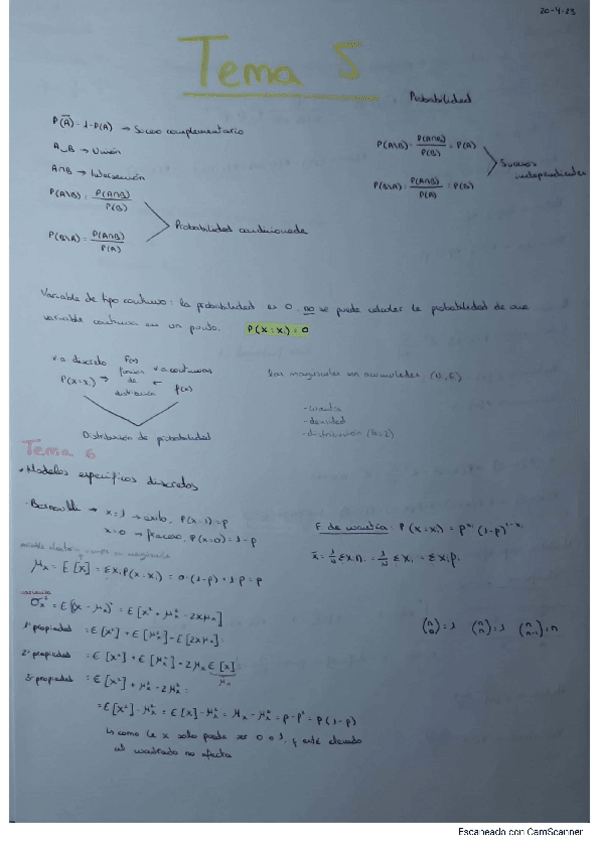 20-4-23
Tema 5
Probabilidad
P(Ā)=1-P(A) → Suceso complementario
A∪B → Unión
A∩B → Intersección
P(A\B) = P(A∩B)/P(B)
P(B\A) = P(A∩B)/P(A)
Probabilidad condicionada
P(A\B) = P(A∩B)/P(B) = P(A)
P(B\A) = P(A∩B)/P(A) = P(B)
Sucesos independientes
Variable de tipo continuo: la probabilidad es 0, no se puede calcular la probabilidad de una
variable continua en un punto. P(X=xi)=0
v.a discreta F(x) v.a continua
P(X=xi) → función de distribución ← f(x)
Distribución de probabilidad
Las mayúsculas son acumuladas (N, F)
- cuantía
- densidad
- distribución
Tema 6
• Modelos específicos discretos
- Bernoulli → x=1 → éxito, P(x=1)=p
x=0 → fracaso, P(x=0)=1-p
F. de cuantía: P(x=xi) = p^xi (1-p)^1-xi
μx = E[x] = Σxi P(x=xi) = 0·(1-p)+1·p = p
x̄ = 1/N Σxi ni = 1/N Σxi = Σxi pi
varianza
σx² = E[(x-μx)²] = E[x²+μx²-2xμx]
1ª propiedad = E[x²]+E[μx²]-E[2xμx]=
2ª propiedad = E[x²]+E[μx²]-2μx E[x]=
μx
3ª propiedad = E[x²]+μx²-2μx²=
= E[x²]-μx² = E[x]-μx² = μx-μx² = p-p² = p(1-p)
↳ como la x solo puede ser 0 o 1, y esté elevado
al cuadrado no afecta
(n 0)=1 (n n)=1 (n n-1)=n
Escaneado con CamScanner